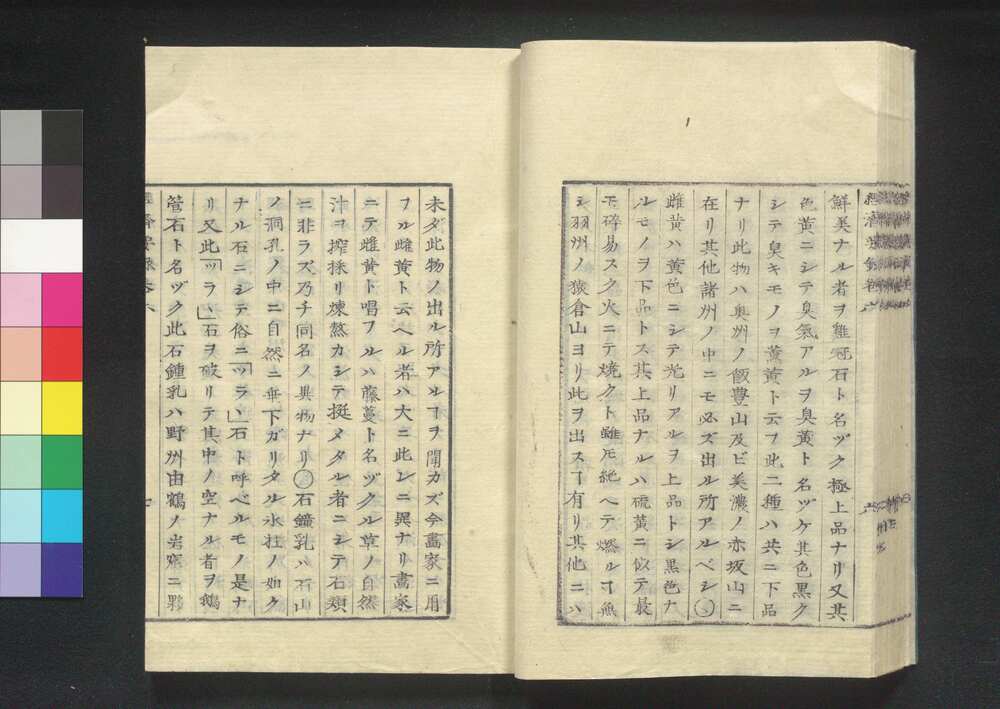 鮮美ナル者ヲ雞冠石ト名ヅク極上品ナリ又其
色黄ニシテ臭氣アルヲ臭黄ト名ヅケ其色黒ク
シテ臭キモノヲ薫黄ト云フ此二種ハ共ニ下品
ナリ此物ハ奥州ノ飯豊山及ビ美濃ノ赤坂山ニ
在リ其他諸州ノ中ニモ必ズ出ル所アルベシ○
雌黄ハ黄色ニシテ光リアルヲ上品トシ黒色ナ
ルモノヲ下品トス其上品ナルハ硫黄ニ似テ最
モ碎易スク火ニテ焼クト雖𪜈絶ヘテ燃ルヿ無
シ羽州ノ狹倉山ヨリ此ヲ出スヿ有リ其他ニハ
未ダ此物ノ出ル所アルヿヲ聞カズ今畫家ニ用
フル雌黄ト云ヘル者ハ大ニ此レニ異ナリ畫家
ニテ雌黄ト唱フルハ藤蔓ト名ヅクル草ノ自然
汁ヲ搾採リ煉熬カシテ挺メタル者ニシテ石類
ニ非ラズ乃チ同名ノ異物ナリ○石鐘乳ハ石山
ノ洞孔ノ中ニ自然ニ垂下ガリタル氷柱ノ如ク
ナル石ニシテ俗ニ「ツラヽ」石ト呼ベルモノ是ナ
リ又此「ツラヽ」石ヲ破リテ其中ノ空ナル者ヲ鵝
管石ト名ヅク此石鍾乳ハ野州由鶴ノ岩窟ニ夥